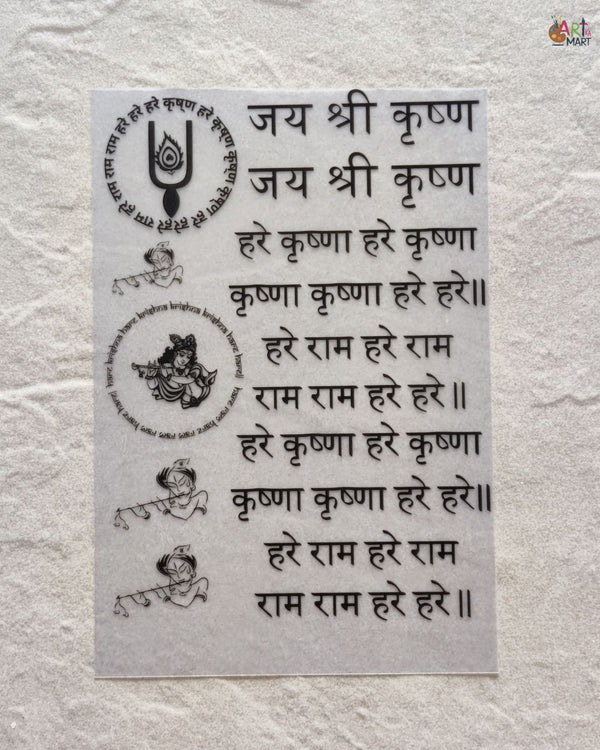 ART
MART
हरे कृष्ण हरे कृष्ण कृष्ण कृष्ण हरे हरे
हरे राम हरे राम राम राम हरे हरे
जय श्री कृष्ण
जय श्री कृष्ण
हरे कृष्णा हरे कृष्णा
कृष्णा कृष्णा हरे हरे॥
हरे राम हरे राम
राम राम हरे हरे॥
हरे कृष्णा हरे कृष्णा
कृष्णा कृष्णा हरे हरे॥
हरे राम हरे राम
राम राम हरे हरे॥
hare krishna hare krishna krishna krishna hare hare
hare ram hare ram ram ram hare hare